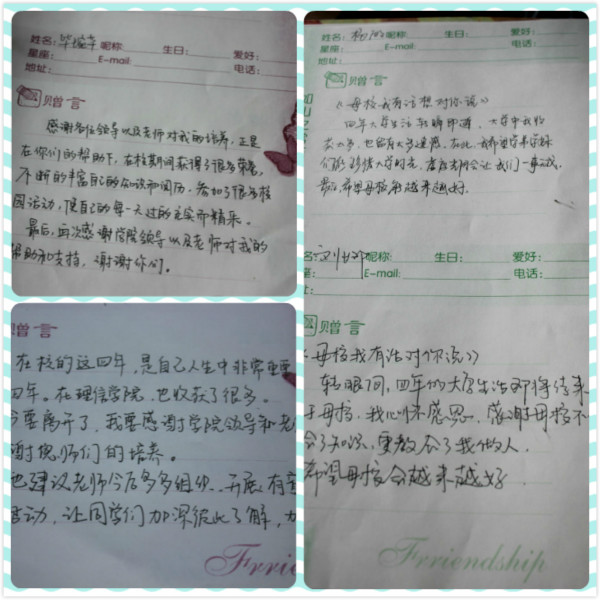 姓名: 昵称: 生日: 爱好:
星座: E-mail: 电话:
地址:
赠言
感谢各位领导以及老师对我的培养,正是
在你们的帮助下,在校期间获得了很多荣誉,
不断的丰富自己的知识和阅历,参加了很多校
园活动,使自己的每一天过的充实而精采。
最后,再次感谢学院领导以及老师对我的
帮助和支持,谢谢你们。
赠言
在校的这四年,是自己人生中非常重要
四年。在理信学院,也收获了很多。
要离开了,我要感谢学院领导和老
谢老师们的培养。
也建议老师今后多多组织、开展有意
活动,让同学们加深彼此了解,
Frrie
姓名: 杨 昵称: 生日: 爱好:
星座: E-mail: 电话:
地址:
赠言
《母校我有话想对你说》
四年大学生活转瞬即逝,大学中我收
获也多,也留有太多遗憾,在此,我希望学弟学妹
们能珍惜大学时光,
最后,希望母校能越来越好。
名: 刘 昵称: 生日: 爱好:
座: E-mail: 电话:
赠言
母校我有话对你说》
转眼间,四年的大学生活即将结束
于母校,我心怀感恩,感谢母校不
给了知识,更教会了我做人。
希望母校会越来越好。
Frriendship